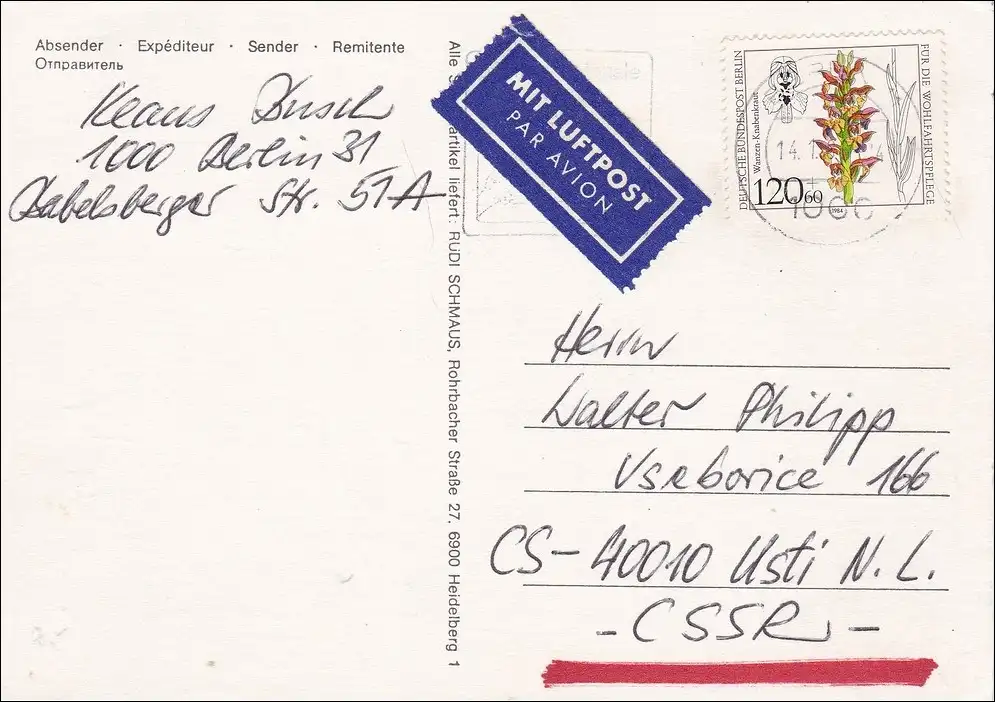 Absender · Expéditeur · Sender · Remitente
Отправитель
Klaus Busch
1000 Berlin 31
Babelsberger Str. 51A
Alle
artikel liefert: RÜDI SCHMAUS, Rohrbacher Straße 27, 6900 Heidelberg 1
MIT LUFTPOST
PAR AVION
DEUTSCHE BUNDESPOST BERLIN
Wanzen-Knabenkraut
FÜR DIE WOHLFAHRTSPFLEGE
120+60
1984
14.1
1000
Herrn
Walter Philipp
Vseborice 166
CS-40010 Usti N. L.
- CSSR -